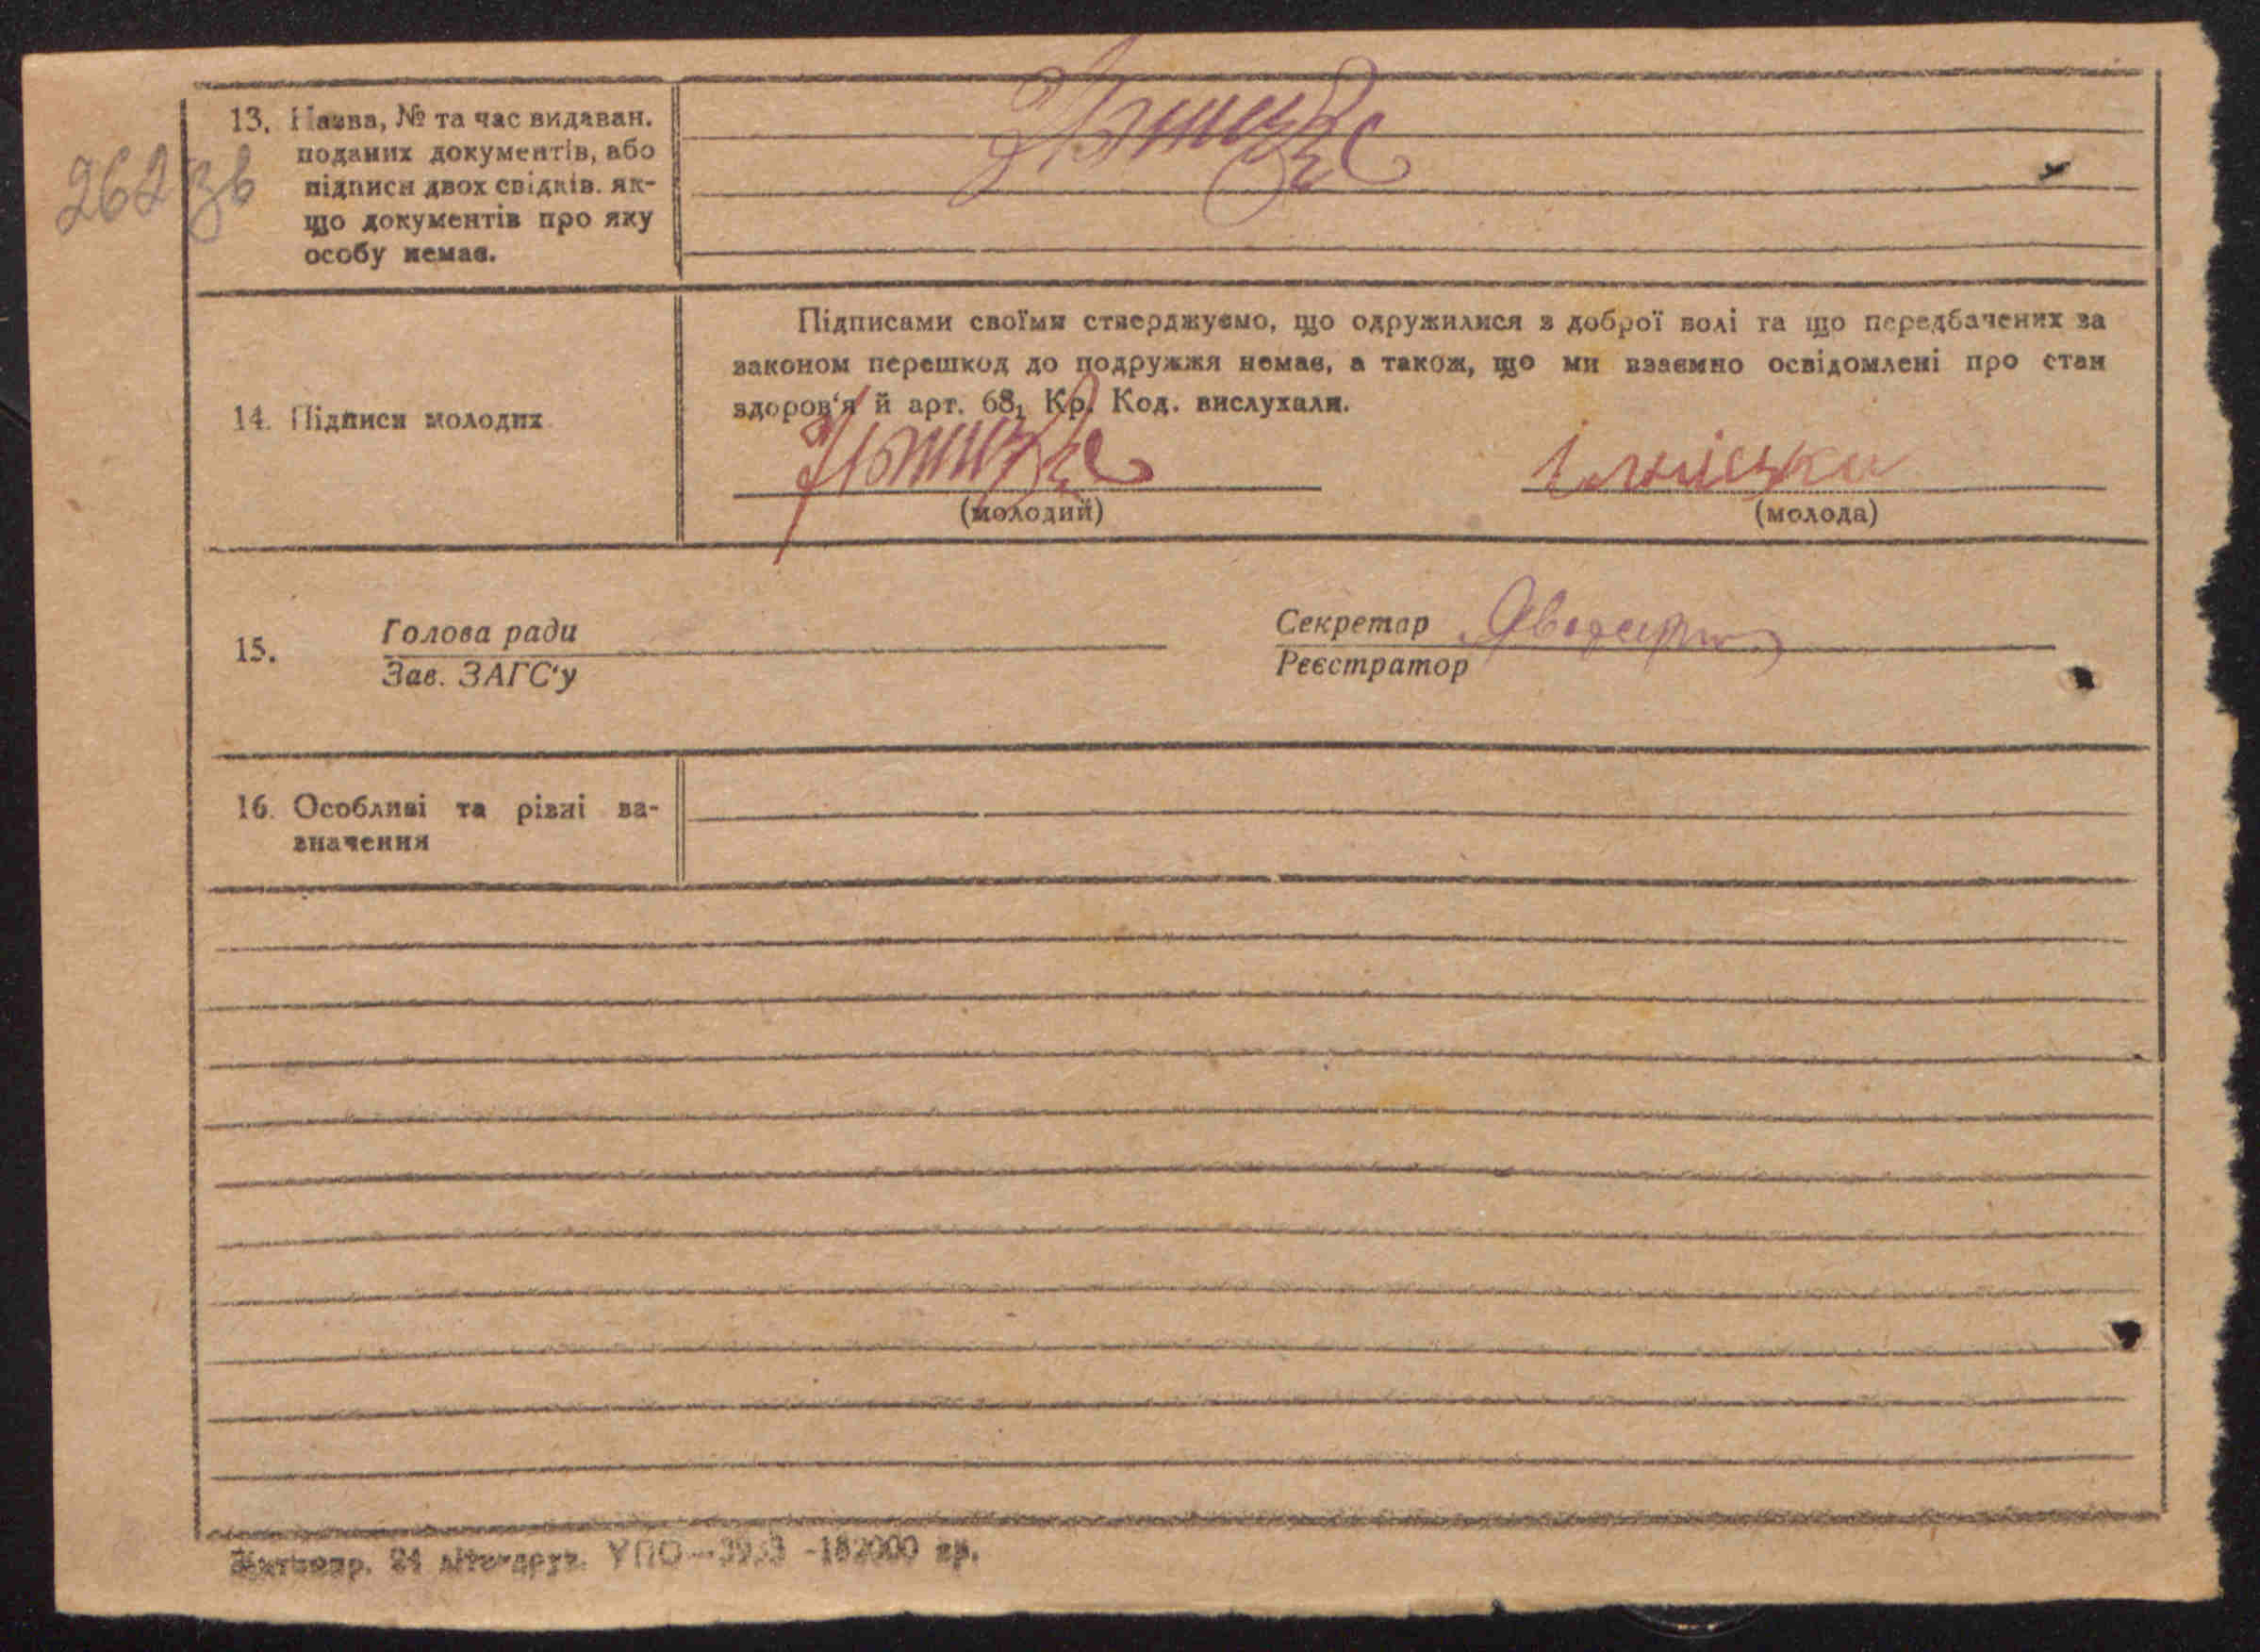 262 зв
13. Назва, № та час видаван.
поданих документів, або
підписи двох свідків, як-
що документів про яку
особу немає.
14. Підписи молодих
Підписами своїми стверджуємо, що одружилися з доброї волі та що передбачених за
законом перешкод до подружжя немає, а також, що ми взаємно освідомлені про стан
здоров'я й арт. 68₁ Кр. Код. вислухали.
(молодий)
(молода)
15.
Голова ради
Зав. ЗАГС'у
Секретар
Реєстратор
16. Особливі та різні за-
значення
24 УПО 182000 пр.